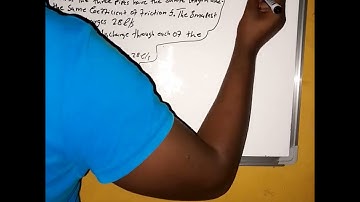 the three Pipes have the same length and
the same Coefficient of friction f. The Broadest
28 l/s
discharge through each of the
28 l/s